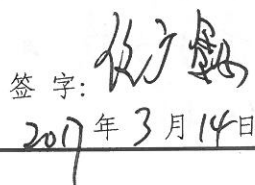 签字:
2017年3月14日